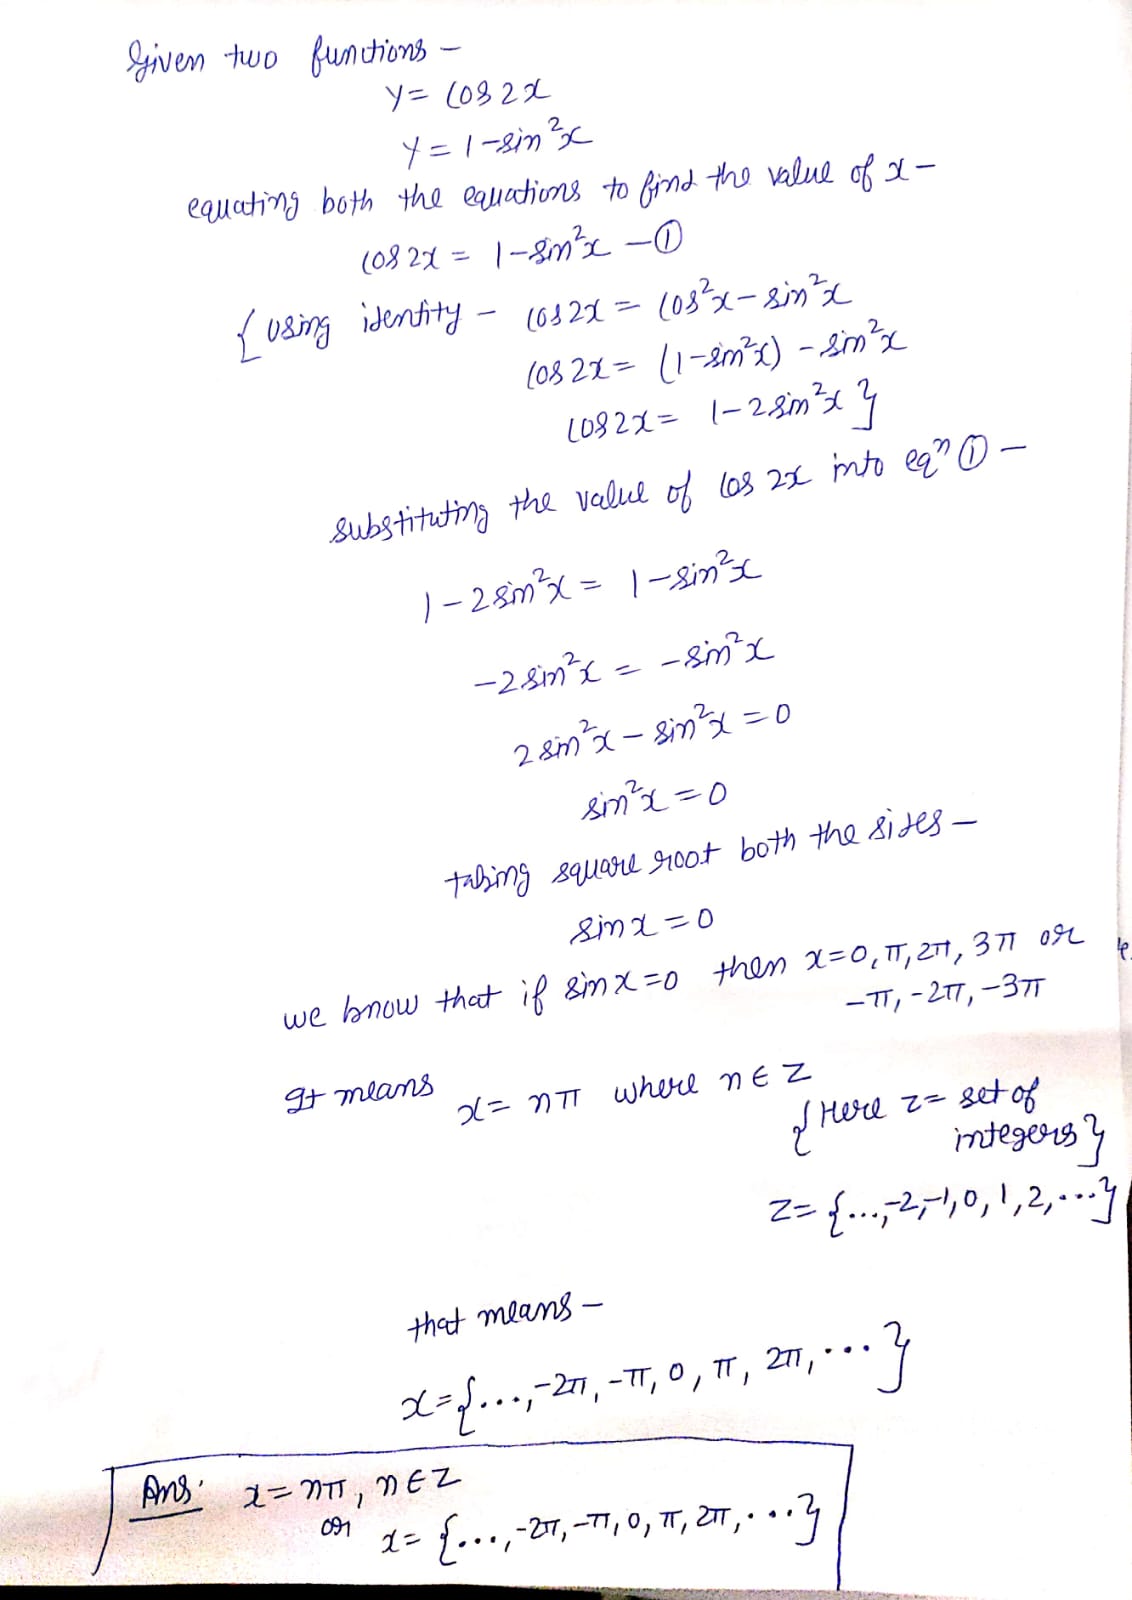 Given two functions -
y = cos 2x
y = 1 - sin²x
equating both the equations to find the value of x -
cos 2x = 1 - sin²x - ①
{ using identity - cos 2x = cos²x - sin²x
cos 2x = (1 - sin²x) - sin²x
cos 2x = 1 - 2 sin²x }
substituting the value of cos 2x into eqⁿ ① -
1 - 2 sin²x = 1 - sin²x
-2 sin²x = - sin²x
2 sin²x - sin²x = 0
sin²x = 0
taking square root both the sides -
sin x = 0
we know that if sin x = 0 then x = 0, π, 2π, 3π or
-π, -2π, -3π
It means x = nπ where n ∈ Z
{ Here z = set of
integers }
z = {..., -2, -1, 0, 1, 2, ...}
that means -
x = {..., -2π, -π, 0, π, 2π, ... }
Ans. x = nπ, n ∈ Z
or x = {..., -2π, -π, 0, π, 2π, ...}